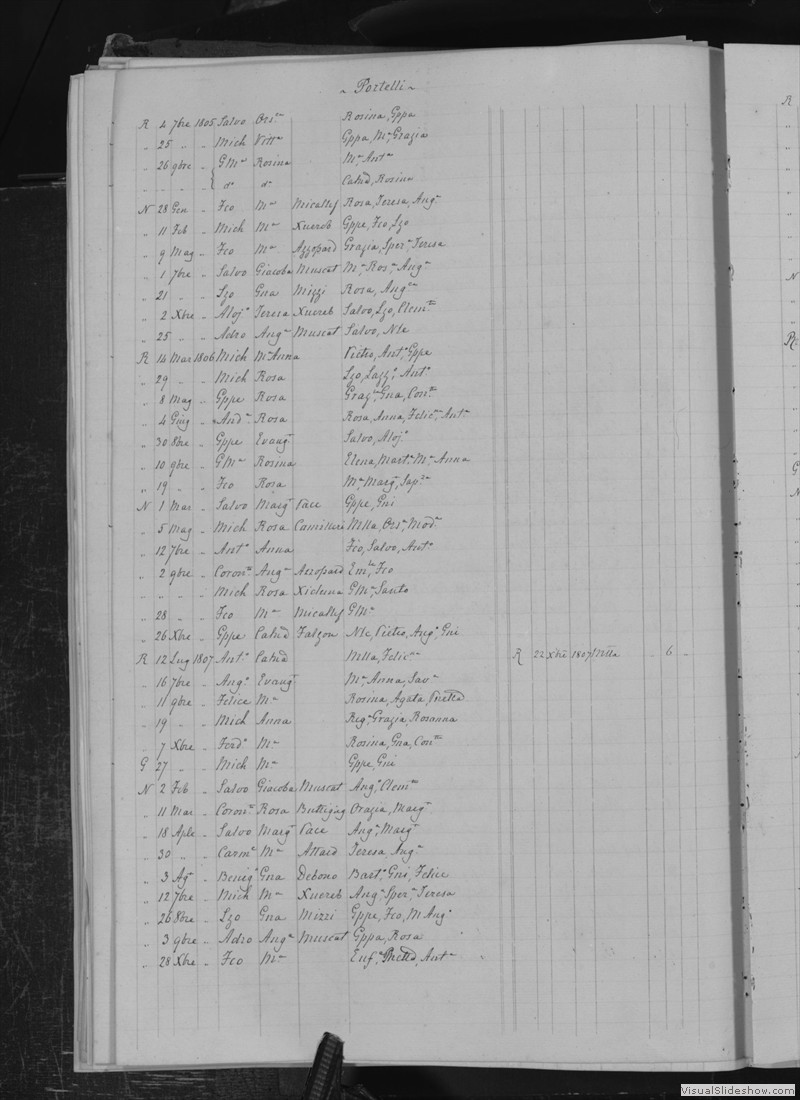 ~ Portelli ~
R 4 7bre 1805 Salvo Ors.a Rosina, Gppa
„ 25 „ „ Mich Vitt.a Gppa, M.a Grazia
„ 26 9bre „ G M.a Rosina M.a Ant.a
„ „ „ „ d.o d.a Catnd, Rosina
N 28 Gen „ Fco M.a Micallef Rosa, Teresa, Ang.a
„ 11 Feb „ Mich M.a Xuereb Gppe, Fco, Lzo
„ 9 Mag „ Fco M.a Azzopard Grazia, Sper.a Teresa
„ 1 7bre „ Salvo Giacoba Muscat M.a Ros.a Ang.a
„ 21 „ „ Lzo Gna Mizzi Rosa, Ang.ca
„ 2 Xbre „ Aloj.o Teresa Xuereb Salvo, Lzo, Clem.te
„ 25 „ „ Adeo Ang.a Muscat Salvo, Nle
R 14 Mar 1806 Mich M.a Anna Pietro, Ant.o Gppe
„ 29 „ „ Mich Rosa Lzo, Lazz.o Ant.o
„ 8 Mag „ Gppe Rosa Graz.a Gna, Con.na
„ 4 Giug „ And.a Rosa Rosa, Anna, Felic.a Ant.a
„ 30 8bre „ Gppe Evang.a Salvo, Aloj.o
„ 10 9bre „ G M.a Rosina Elena, Mart.a M.a Anna
„ 19 „ „ Fco Rosa M.a Marg.a Sap.za
N 1 Mar „ Salvo Marg.a Pace Gppe, Gni
„ 5 Mag „ Mich Rosa Camilleri Mlla, Ors.a Mod.a
„ 12 7bre „ Ant.o Anna Fco, Salvo, Ant.o
„ 2 9bre „ Coron.to Ang.a Azzopard Em.le, Fco
„ „ „ „ Mich Rosa Xicluna G M.a Santo
„ 28 „ „ Fco M.a Micallef G M.a
„ 26 Xbre „ Gppe Catnd Falzon Nle, Pietro, Ang.o Gni
R 12 Lug 1807 Ant.o Catnd Mlla, Felic.a R 22 Xbre 1807 Mlla „ 6 „
„ 16 7bre „ Ang.o Evang.a M.a Anna, Sav.a
„ 11 9bre „ Felice M.a Rosina, Agata
„ 19 „ „ Mich Anna Reg.a Grazia, Rosanna
„ 7 Xbre „ Ferd.o M.a Rosina, Gna, Con.na
G 27 „ „ Mich M.a Gppe, Gni
N 2 Feb „ Salvo Giacoba Muscat Ang.o Clem.te
„ 11 Mar „ Coron.to Rosa Buttigieg Orazia, Marg.a
„ 18 Aple „ Salvo Marg.a Pace Ang.a Marg.a
„ 30 „ „ Carm.o M.a Attard Teresa, Ang.a
„ 3 Ag.o „ Benig.o Gna Debono Bart.o Gni, Felice
„ 12 7bre „ Mich M.a Xuereb Ang.a Sper.a Teresa
„ 26 8bre „ Lzo Gna Mizzi Gppe, Fco, M Ang.o
„ 3 9bre „ Adeo Ang.a Muscat Gppa, Rosa
„ 28 Xbre „ Fco M.a Euf.a Ant.a
VisualSlideshow.com